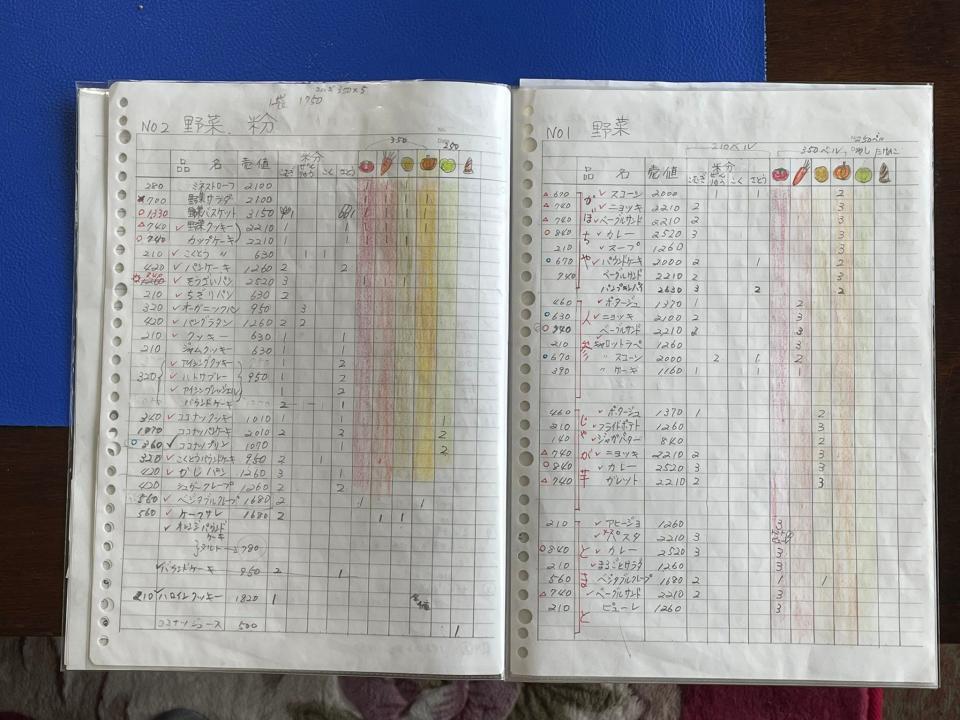 1750
No 2 野菜. 粉
350
250
粉
品 名 売値 こむぎ こく さとう
280 ミネストローフ 2100 1 1 1
700 野菜サラダ 2100 1 1 1 1
1330 野菜バスケット 3150
740 ✓ 野菜クッキー 2210 1
740 カップケーキ 2210 1
210 ✓ こくとう 〃 630 1 1
420 ✓ パンケーキ 1260 2 2
ぞうすいパン 2520 3
210 ✓ ちぎりパン 630 2
320 ✓ オーガニックパン 950 3
420 ✓ パングラタン 1260 2 2
210 ✓ クッキー 630 1 1
210 ジャムクッキー 630 1 1
✓ アイシングクッキー 1 2
320 ✓ ハトサブレー 950 1 2
✓ アイシングプレッツェル 1 2
パウンドケーキ 2 1
340 ✓ ココナツクッキー 1010 1 1 1
1090 ココナツパンケーキ 2010 2 2 2
360 ✓ ココナップリン 1070 2
320 ✓ こくとうパウンドケーキ 950 2 1
420 ✓ かしパン 1260 3 1
420 シュガークレープ 1260 2 2
560 ✓ ベジタブルクレープ 1680 2 1 1
560 ✓ ケークサレ 1680 2 1 1
✓ オレンジパウンドケーキ
タルト
✓ パウンドケーキ 950 2 1
210 ✓ ハロインクッキー 1820 1
ココナツジュース 500 1
No 1 野菜
210ベル
350ベル
品 名 売値 こむぎ こく さとう
粉
かぼちゃ
670 ✓ スコーン 2000 1 1 2
740 ✓ ニョッキ 2210 2 3
740 ✓ ベーグルサンド 2210 2 3
840 ✓ カレー 2520 3 3
210 ✓ スープ 1260 3
670 ✓ パウンドケーキ 2000 2 1 2
740 ベーグルサンド 2210 2 3
パンプキンパイ 2630 3 2 2
人参
460 ✓ ポタージュ 1370 1 2
630 ✓ ニョッキ 2100 2 3
940 ベーグルサンド 2210 2 3
210 ✓ キャロットラペ 1260 3
670 〃 スコーン 2000 2 1 2
390 〃 ケーキ 1160 1 1 1
じゃが芋
460 ✓ ポタージュ 1370 1 2
210 ✓ フライドポテト 1260 3
140 ✓ ジャガバター 840 2
740 ✓ ニョッキ 2210 2 3
840 ✓ カレー 2520 3 3
740 ガレット 2210 2 3
とまと
210 ✓ アヒージョ 1260 3
✓ パスタ 2210 3
840 ✓ カレー 2520 3 3
210 ✓ まるごとサラダ 1260 3
560 ベジタブルクレープ 1680 2 1 1
740 ✓ ベーグルサンド 2210 2 3
210 ピューレ 1260 3